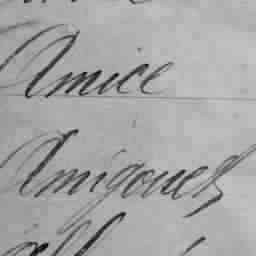 Amice
Amigouet